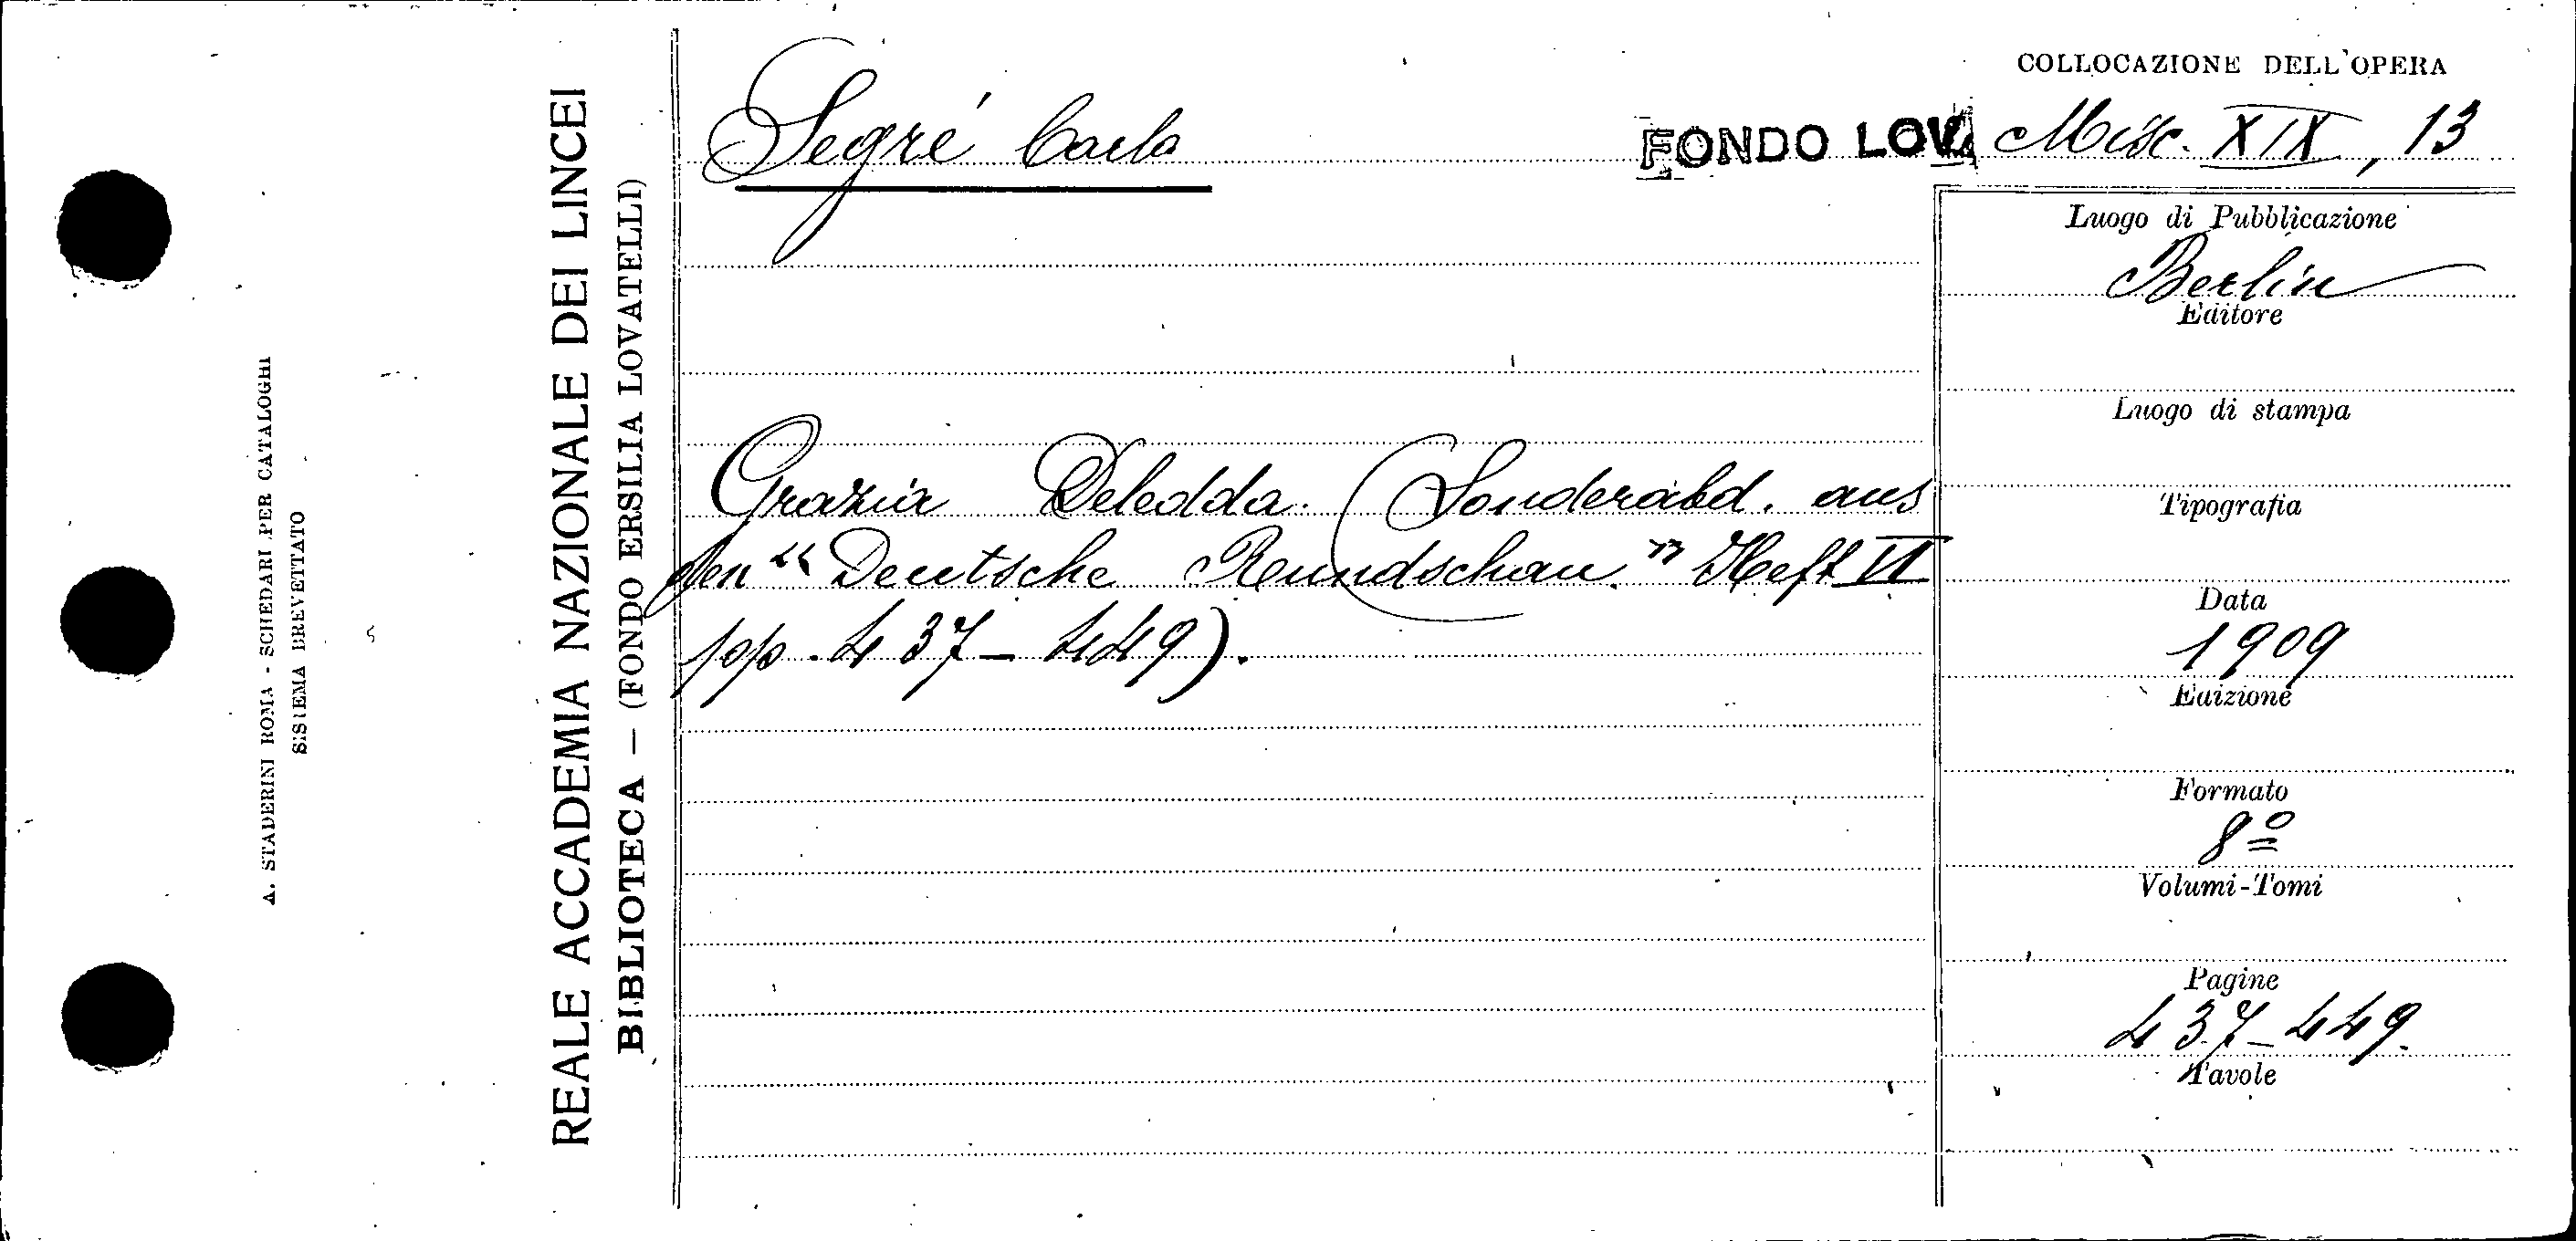 COLLOCAZIONE DELL'OPERA
Segré Carlo
FONDO LOV. Misc. XIX, 13
Grazia Deledda. (Sonderabd. aus
den "Deutsche Rundschau." Heft VI
pp. 437-449).
Luogo di Pubblicazione
Berlin
Editore
Luogo di stampa
Tipografia
Data
1909
Edizione
Formato
8º
Volumi-Tomi
Pagine
437-449.
Tavole
REALE ACCADEMIA NAZIONALE DEI LINCEI
BIBLIOTECA — (FONDO ERSILIA LOVATELLI)
A. STADERINI ROMA - SCHEDARI PER CATALOGHI
SISTEMA BREVETTATO